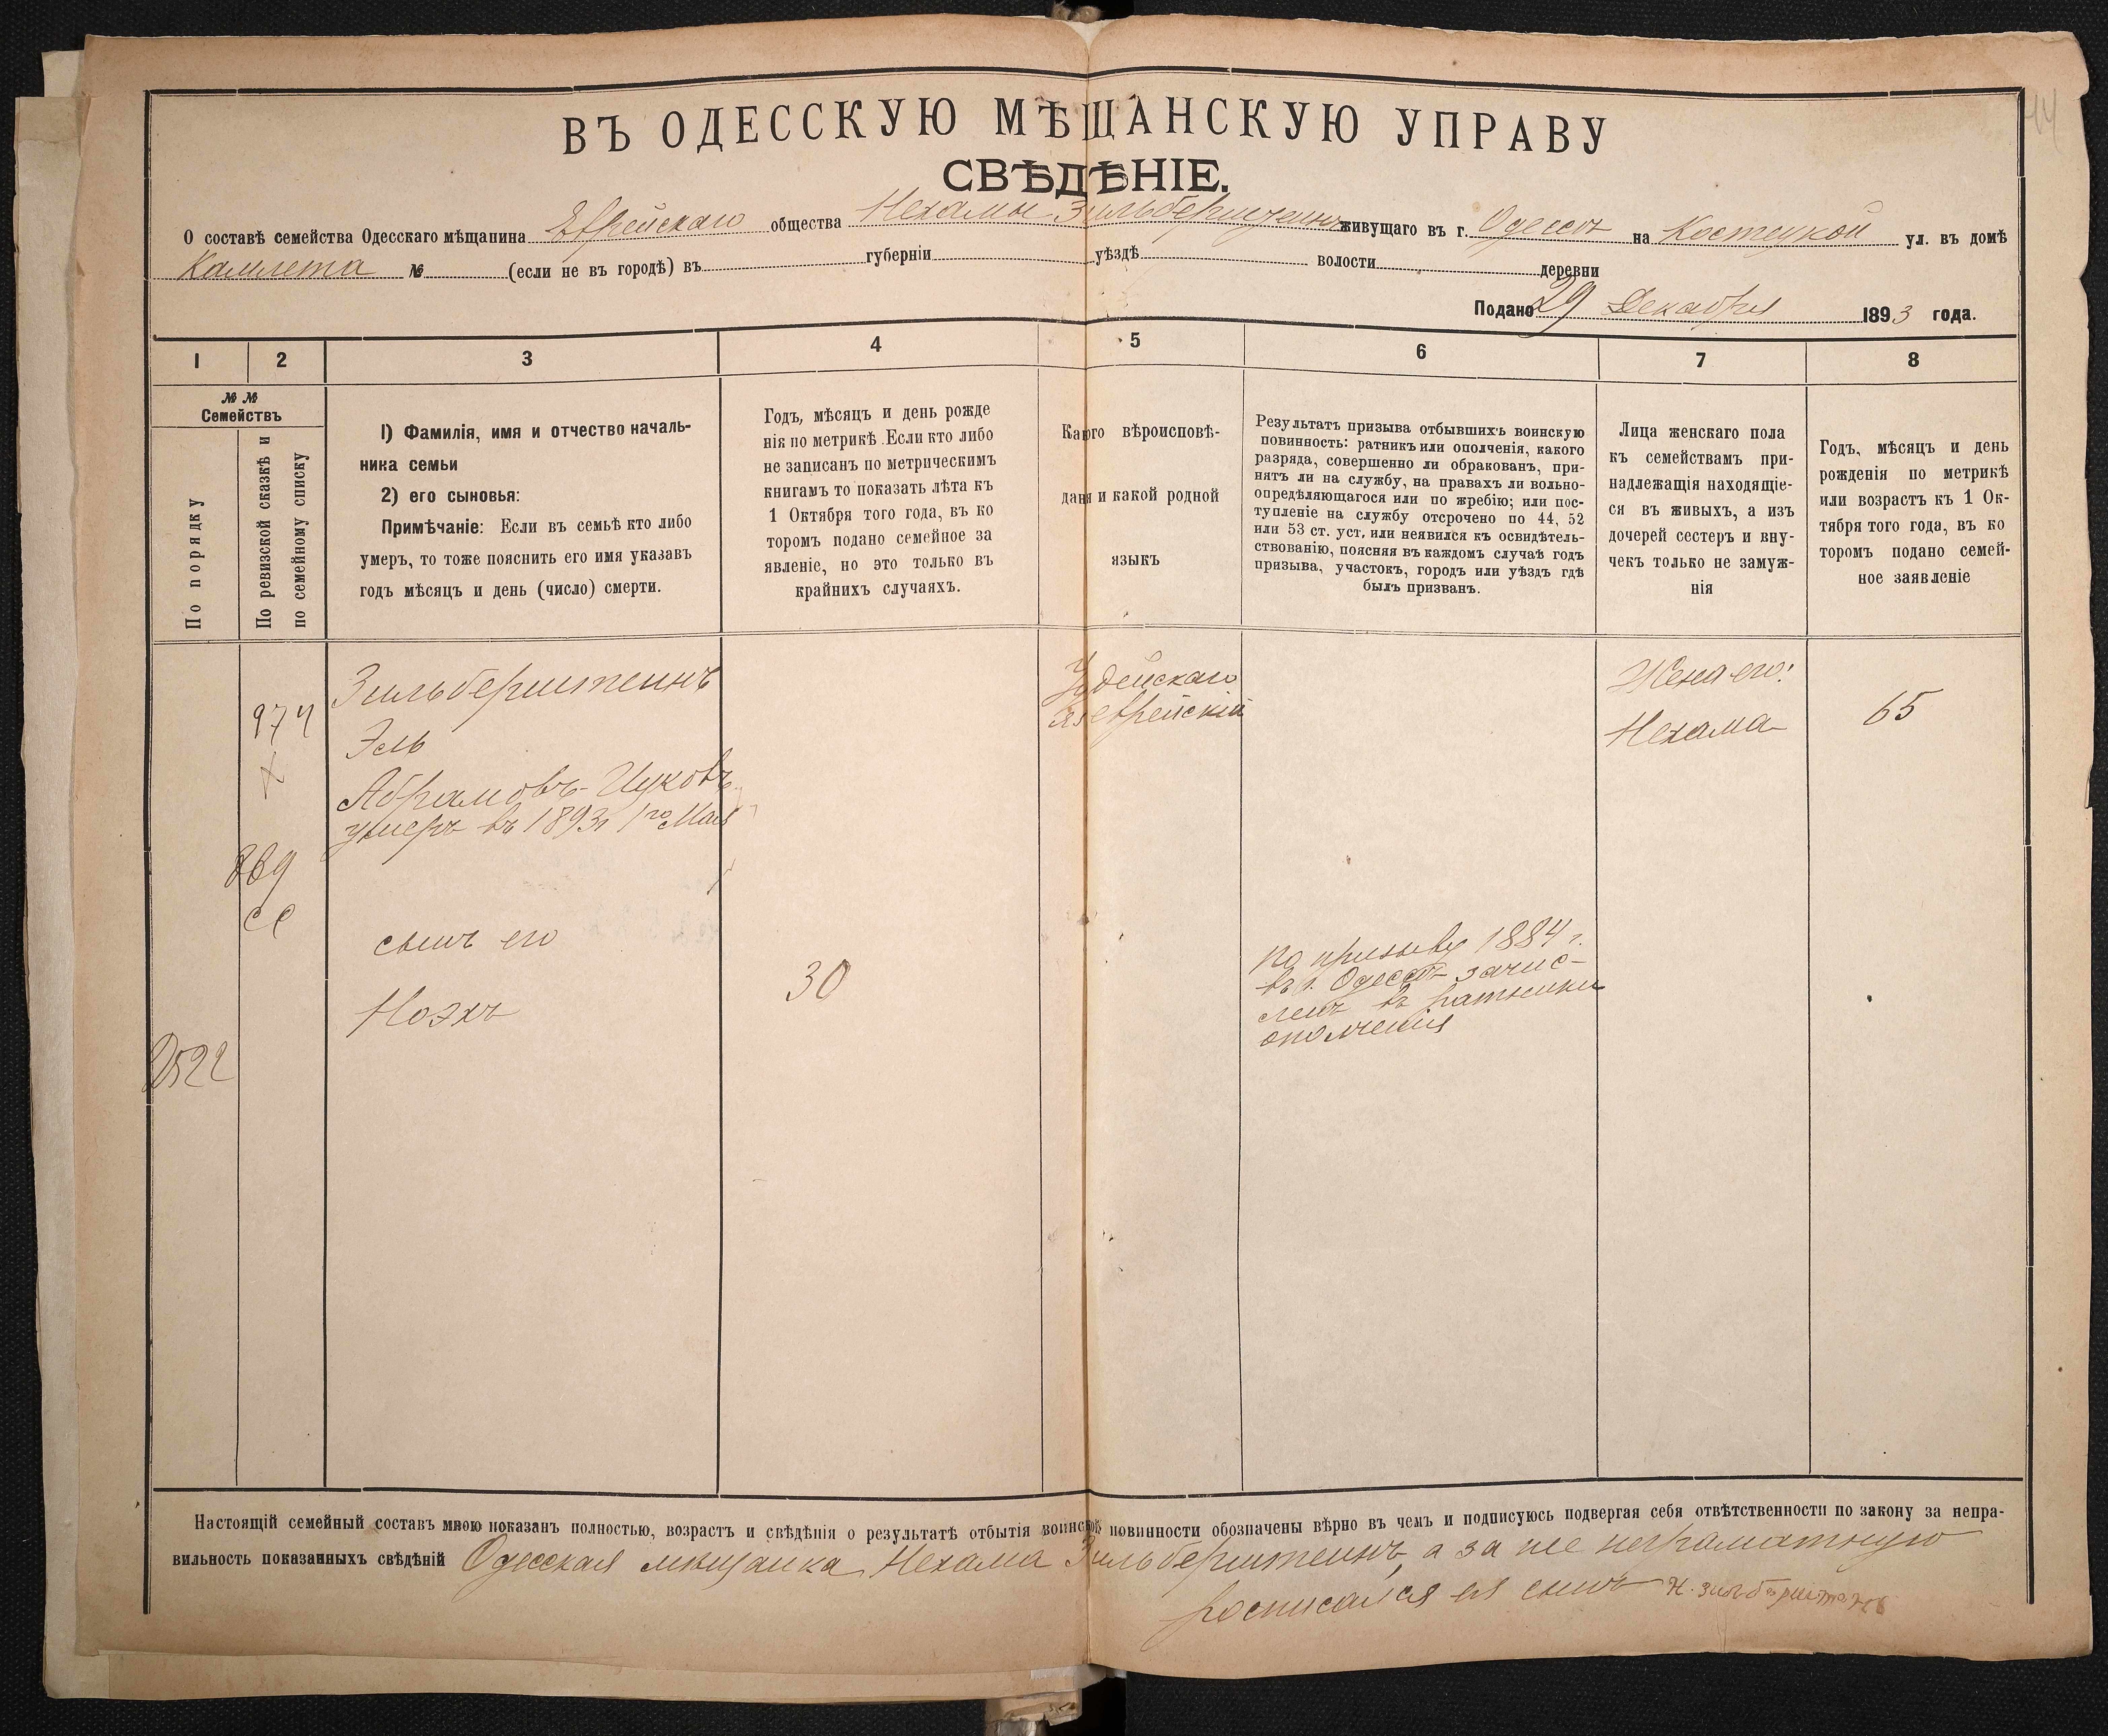 44
ВЪ ОДЕССКУЮ МѢЩАНСКУЮ УПРАВУ
СВѢДѢНІЕ.
О составѣ семейства Одесскаго мѣщанина Еврейскаго общества Нехамы Зильберштеинъ живущаго въ г. Одессѣ на Костецкой ул. въ домѣ
Камлета № (если не въ городѣ) въ губерніи уѣздѣ волости деревни
Подано 29 Декабря 1893 года.
1 2 3 4 5 6 7 8
№ №
Семействъ
По порядку
По ревизской сказкѣ и
по семейному списку
1) Фамилія, имя и отчество началь-
ника семьи
2) его сыновья:
Примѣчаніе: Если въ семьѣ кто либо
умеръ, то тоже пояснить его имя указавъ
годъ мѣсяцъ и день (число) смерти.
Годъ, мѣсяцъ и день рожде
нія по метрикѣ .Если кто либо
не записанъ по метрическимъ
книгамъ то показать лѣта къ
1 Октября того года, въ ко
торомъ подано семейное за
явленіе, но это только въ
крайнихъ случаяхъ.
Какого вѣроисповѣ-
данія и какой родной
языкъ
Результатъ призыва отбывшихъ воинскую
повинность: ратникъ или ополченія, какого
разряда, совершенно ли обракованъ, при-
нятъ ли на службу, на правахъ ли вольно-
опредѣляющагося или по жребію; или пос-
тупленіе на службу отсрочено по 44, 52
или 53 ст. уст, или неявился къ освидѣтель-
ствованію, поясняя въ каждомъ случаѣ годъ
призыва, участокъ, городъ или уѣздъ гдѣ
былъ призванъ.
Лица женскаго пола
къ семействамъ при-
надлежащія находящіе-
ся въ живыхъ, а изъ
дочерей сестеръ и вну-
чекъ только не замуж-
нія
Годъ, мѣсяцъ и день
рожденія по метрикѣ
или возрастъ къ 1 Ок-
тября того года, въ ко
торомъ подано семей-
ное заявленіе
974
Зильберштеинъ
Эль
Абрамовъ-Цуковъ
умеръ въ 1893г 1го Мая
Іудейскаго
яз еврейскій
Жена его:
Нехама
65
869
сс
сынъ его
Ноэхъ
30
по призыву 1884 г.
въ г. Одессѣ зачис-
ленъ въ ратники
ополченія
2522
Настоящій семейный составъ мною показанъ полностью, возрастъ и свѣдѣнія о результатѣ отбытія воинской повинности обозначены вѣрно въ чемъ и подписуюсь подвергая себя отвѣтственности по закону за непра-
вильность показанныхъ свѣдѣній Одесская мѣщанка Нехама Зильберштеинъ, а за нее неграматную
росписался ея сынъ Н. Зильберштейнъ